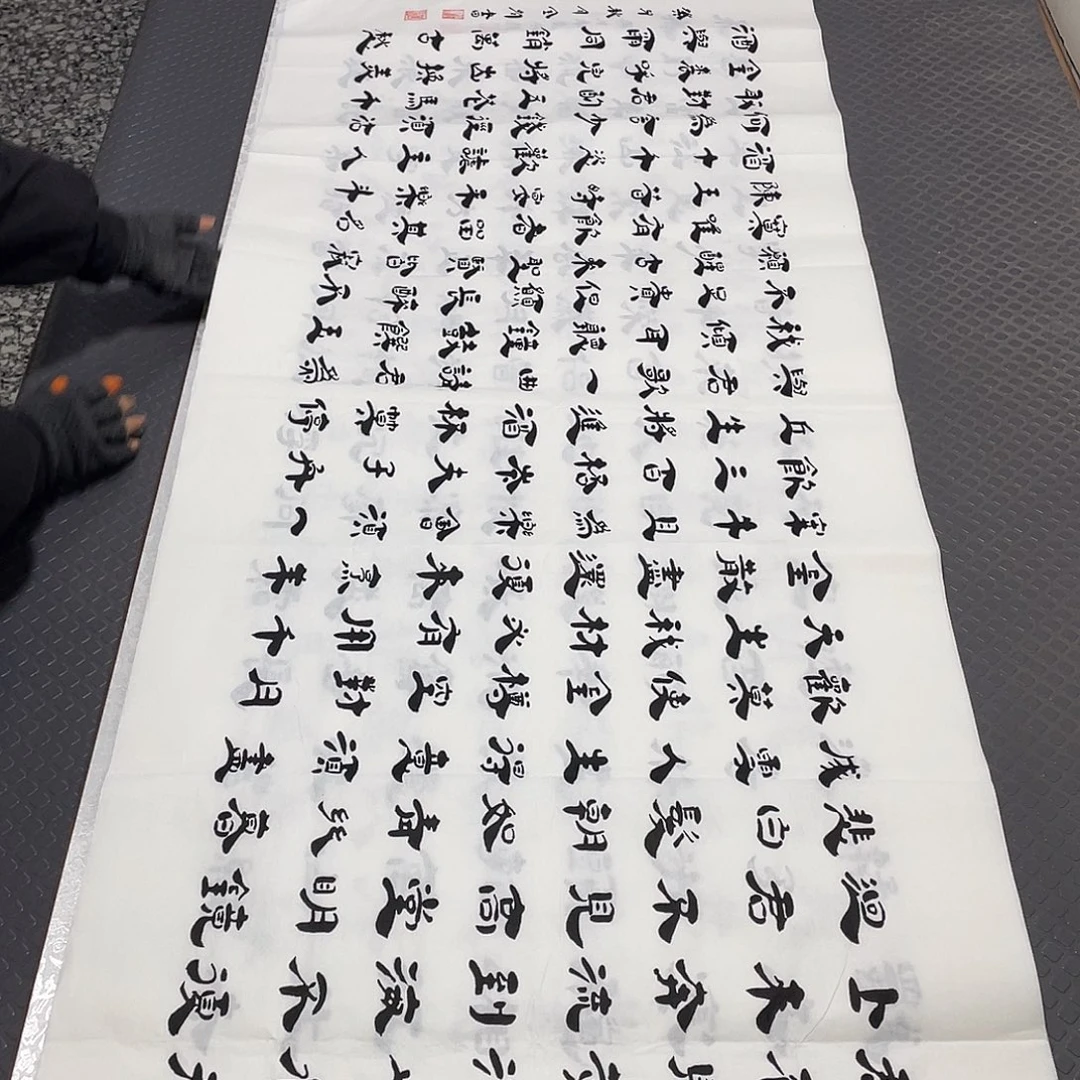 君不見黃河之水天
上來奔流到海不復
迴君不見高堂明鏡
悲白髮朝如青絲暮
成雪人生得意須盡
歡莫使金樽空對月
天生我材必有用千
金散盡還復來烹羊
宰牛且為樂會須一
飲三百杯岑夫子丹
丘生將進酒杯莫停
與君歌一曲請君為
我傾耳聽鐘鼓饌玉
不足貴但願長醉不
願醒古來聖賢皆寂
寞唯有飲者留其名
陳王昔時宴平樂斗
酒十千恣歡謔主人
何為言少錢徑須沽
取對君酌五花馬千
金裘呼兒將出換美
酒與爾同銷萬古愁